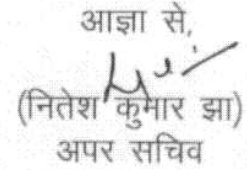 आज्ञा से,
(नितेश कुमार झा)
अपर सचिव